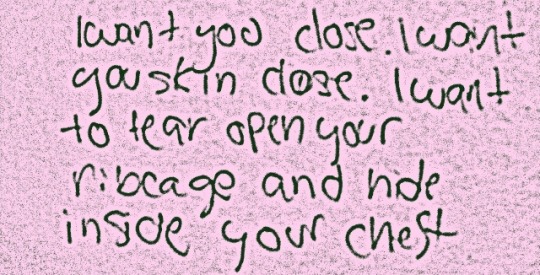 I want you close. I want
you skin close. I want
to tear open your
ribcage and hide
inside your chest